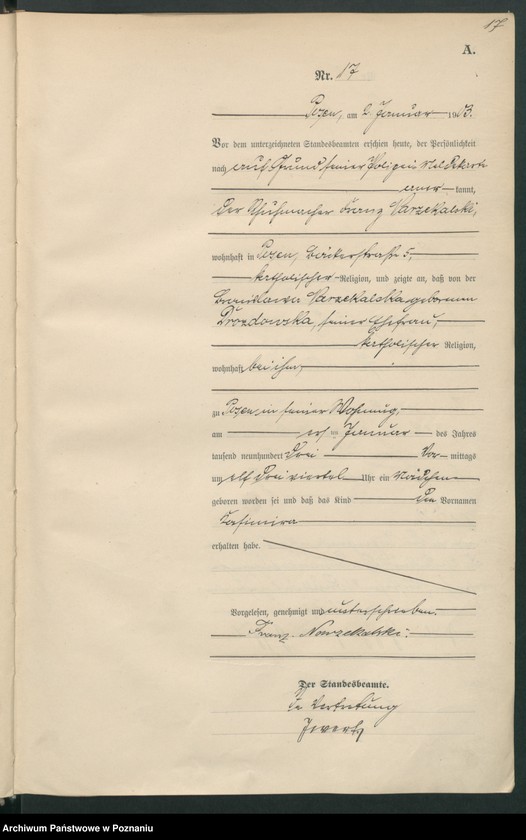 17
A.
Nr. 17
Posen, am 2 Januar 1903.
Vor dem unterzeichneten Standesbeamten erschien heute, der Persönlichkeit
nach auf Grund seiner Polizei Meldekarte
aner kannt,
der Schuhmacher Franz
wohnhaft in Posen, Bäckerstraße 5,
katholischer Religion, und zeigte an, daß von der
Bronislawa geborenen
Drozdowska, seiner Ehefrau,
katholischer Religion,
wohnhaft bei ihm,
zu Posen, in seiner Wohnung,
am ersten Januar des Jahres
tausend neunhundert drei Vor mittags
um elf dreiviertel Uhr ein Mädchen
geboren worden sei und daß das Kind den Vornamen
Kasimira
erhalten habe.
Vorgelesen, genehmigt und unterschrieben.
Franz
Der Standesbeamte.
In Vertretung
Archiwum Państwowe w Poznaniu
haystack.pl